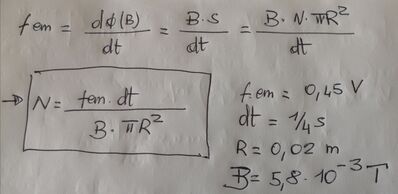 fem = dϕ(B)/dt = B·S/dt = B·N·πR²/dt
→ N = fem·dt/B·πR²
fem = 0,45 V
dt = 1/4 s
R = 0,02 m
B = 5,8·10⁻³ T